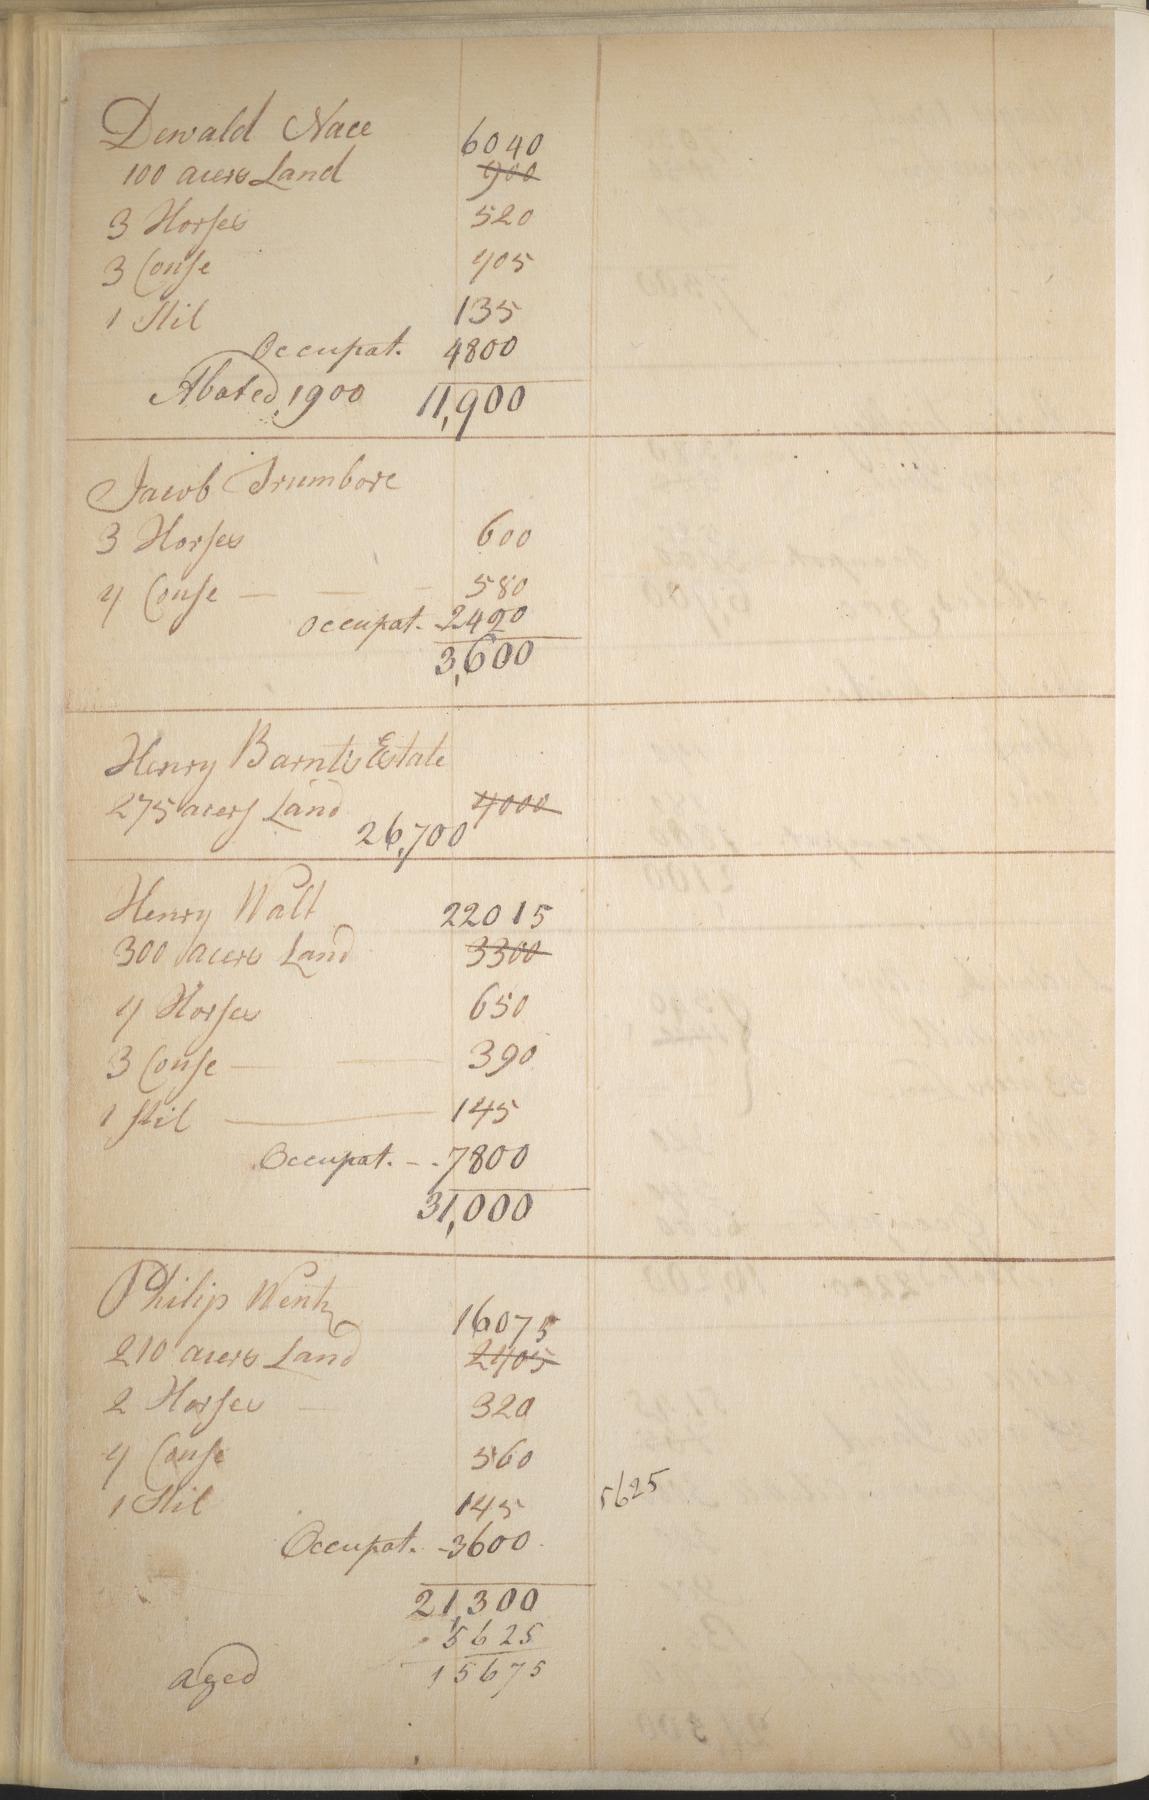 Dewald Nace
6040
100 acers Land 900
3 Horses 520
3 Couse 405
1 Stil 135
Occupat. 4800
Abated 1900 11,900
Jacob Trumbore
3 Horses 600
4 Couse — — - 580
Occupat. - 2420
3,600
Henry Barnts Estate
275 acers Land 4000
26,700
Henry Walt 22015
300 acers Land 3300
4 Horses 650
3 Couse — — 390
1 Stil — 145
Occupat. - - 7800
31,000
Philip Wentz
16075
210 acers Land 2405
2 Horses — 320
4 Couse 560
1 Stil 145 5625
Occupat. - 3600
21,300
5625
aged 15675